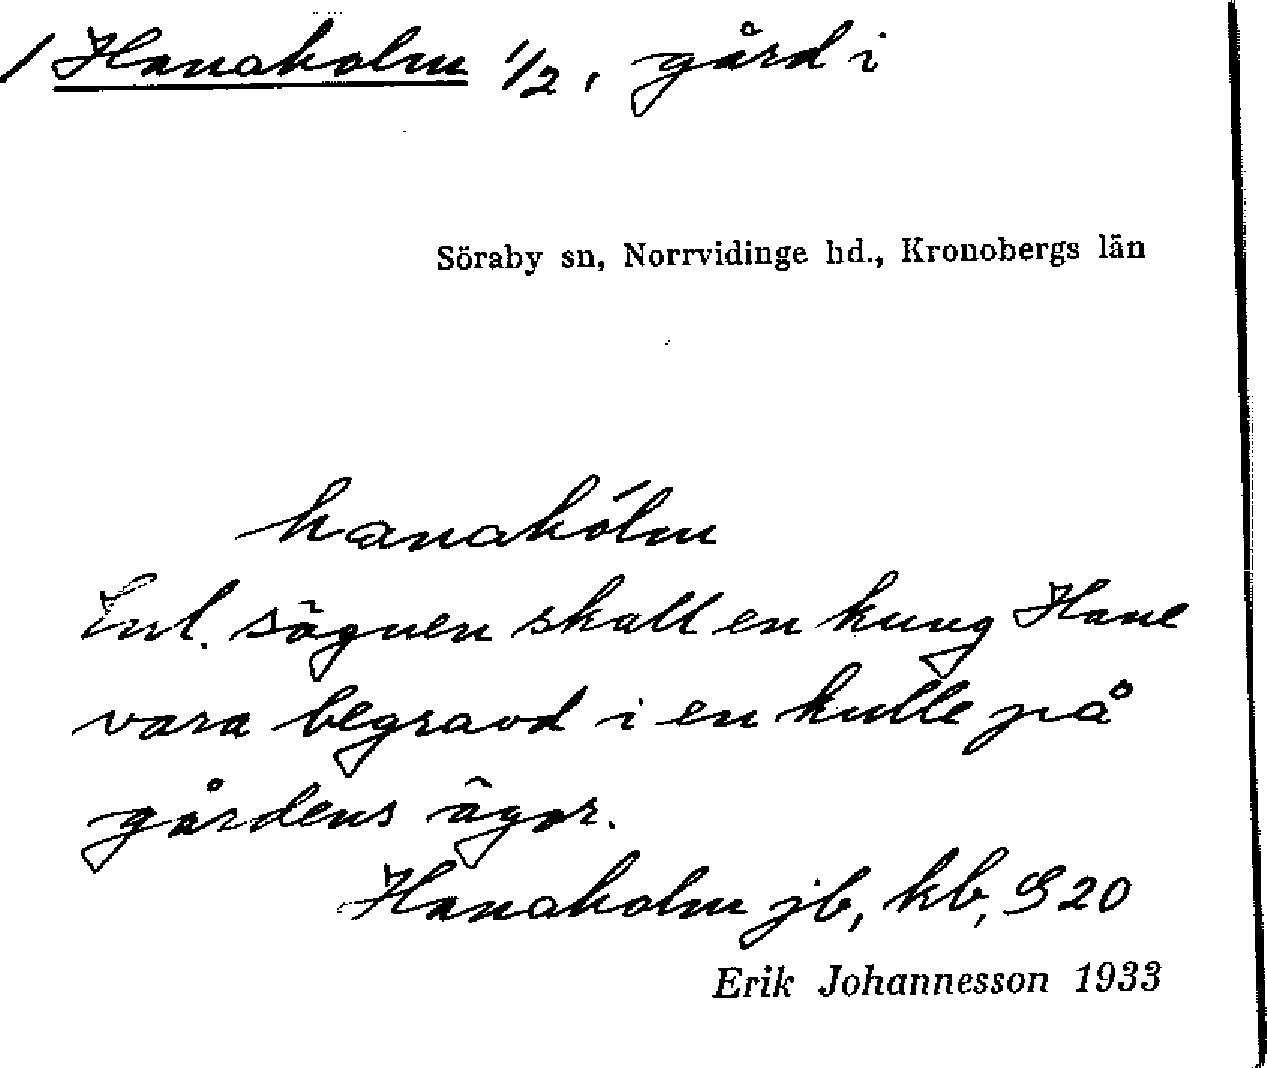 / Hanaholm 1/2, gård i
Söraby sn, Norrvidinge hd., Kronobergs län
hanahólm
Enl. sägnen skall en kung Hane
vara begravd i en kulle på
gårdens ägor.
Hanaholm jb, kb, S 20
Erik Johannesson 1933